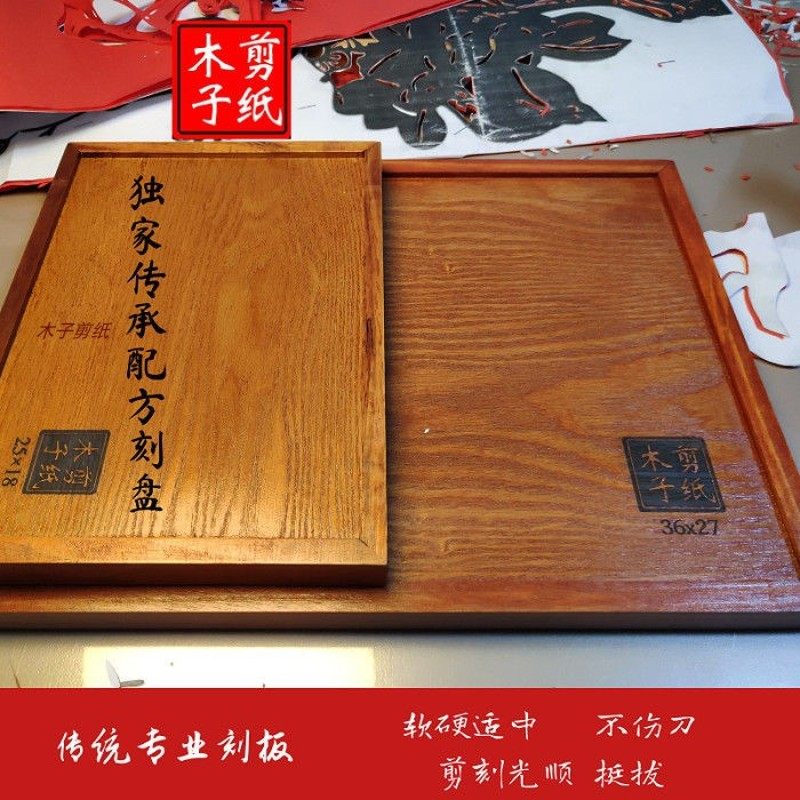 木剪
子纸
独家传承配方刻盘
木子剪纸
木剪
子纸
25×18
木剪
子纸
36x27
传统专业刻板
软硬适中 不伤刀
剪刻光顺 挺拔